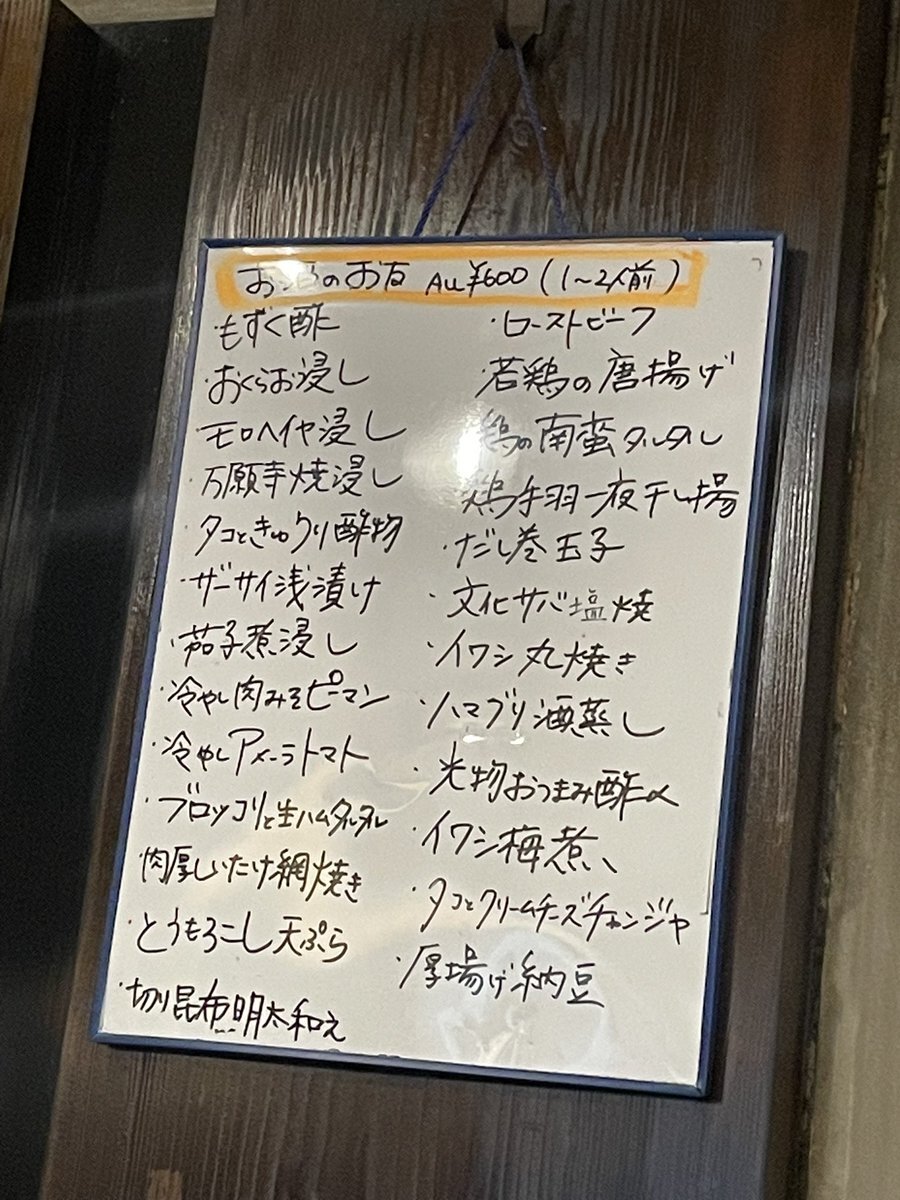 お酒のお友 ALL ¥600 (1〜2人前)
・もずく酢
・おくらお浸し
・モロヘイヤ浸し
・万願寺焼浸し
・タコときゅうり酢物
・ザーサイ浅漬け
・茄子煮浸し
・冷やし肉みそピーマン
・冷やしアメーラトマト
・ブロッコリと生ハムタルタル
・肉厚しいたけ網焼き
・とうもろこし天ぷら
・切り昆布明太和え
・ローストビーフ
若鶏の唐揚げ
鶏の南蛮タルタル
鶏手羽一夜干し揚
・だし巻玉子
・文化サバ塩焼
・イワシ丸焼き
・ハマグリ酒蒸し
・光物おつまみ酢〆
・イワシ梅煮
・タコとクリームチーズチャンジャ
・厚揚げ納豆